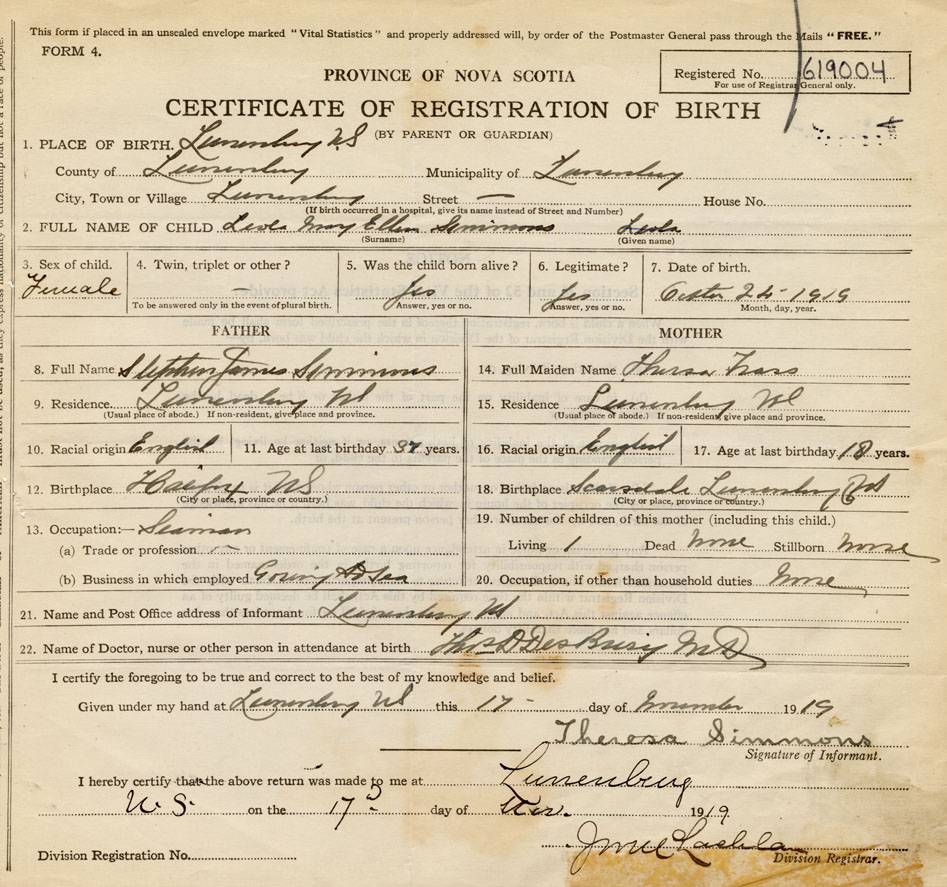 This form if placed in an unsealed envelope marked "Vital Statistics" and properly addressed will, by order of the Postmaster General pass through the Mails "FREE."
FORM 4.
PROVINCE OF NOVA SCOTIA
Registered No. 619004
For use of Registrar General only.
CERTIFICATE OF REGISTRATION OF BIRTH
(BY PARENT OR GUARDIAN)
1. PLACE OF BIRTH. Lunenburg NS
County of Lunenburg Municipality of Lunenburg
City, Town or Village Lunenburg Street — House No.
(If birth occurred in a hospital, give its name instead of Street and Number)
2. FULL NAME OF CHILD Leola May Ellen Simmons Leola
(Surname) (Given name)
3. Sex of child. 4. Twin, triplet or other? 5. Was the child born alive? 6. Legitimate? 7. Date of birth.
Female — Yes Yes 1919
To be answered only in the event of plural birth. Answer, yes or no. Answer, yes or no. Month, day, year.
FATHER MOTHER
8. Full Name Stephen James Simmons 14. Full Maiden Name Theresa
9. Residence. Lunenburg NS 15. Residence Lunenburg NS
(Usual place of abode.) If non-resident, give place and province. (Usual place of abode.) If non-resident, give place and province.
10. Racial origin English 11. Age at last birthday 37 years. 16. Racial origin English 17. Age at last birthday 18 years.
12. Birthplace Halifax NS 18. Birthplace Lunenburg
(City or place, province or country.) (City or place, province or country.)
13. Occupation:— Seaman 19. Number of children of this mother (including this child.)
(a) Trade or profession — Living 1 Dead None Stillborn None
(b) Business in which employed Going to Sea 20. Occupation, if other than household duties None
21. Name and Post Office address of Informant Lunenburg NS
22. Name of Doctor, nurse or other person in attendance at birth DesBrisay MD
I certify the foregoing to be true and correct to the best of my knowledge and belief.
Given under my hand at Lunenburg NS this 17 - day of November 1919
Theresa Simmons
Signature of Informant.
I hereby certify that the above return was made to me at Lunenburg
N.S. on the 17 day of Nov. 1919.
Division Registration No. Division Registrar.